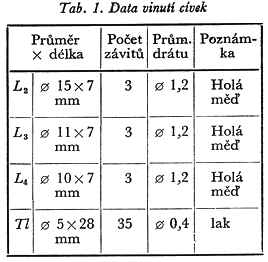 Tab. 1. Data vinutí cívek
Průměr × délka Počet závitů Prům. drátu Poznám-ka
L₂ ⌀ 15×7 mm 3 ⌀ 1,2 Holá měď
L₃ ⌀ 11×7 mm 3 ⌀ 1,2 Holá měď
L₄ ⌀ 10×7 mm 3 ⌀ 1,2 Holá měď
Tl ⌀ 5×28 mm 35 ⌀ 0,4 lak